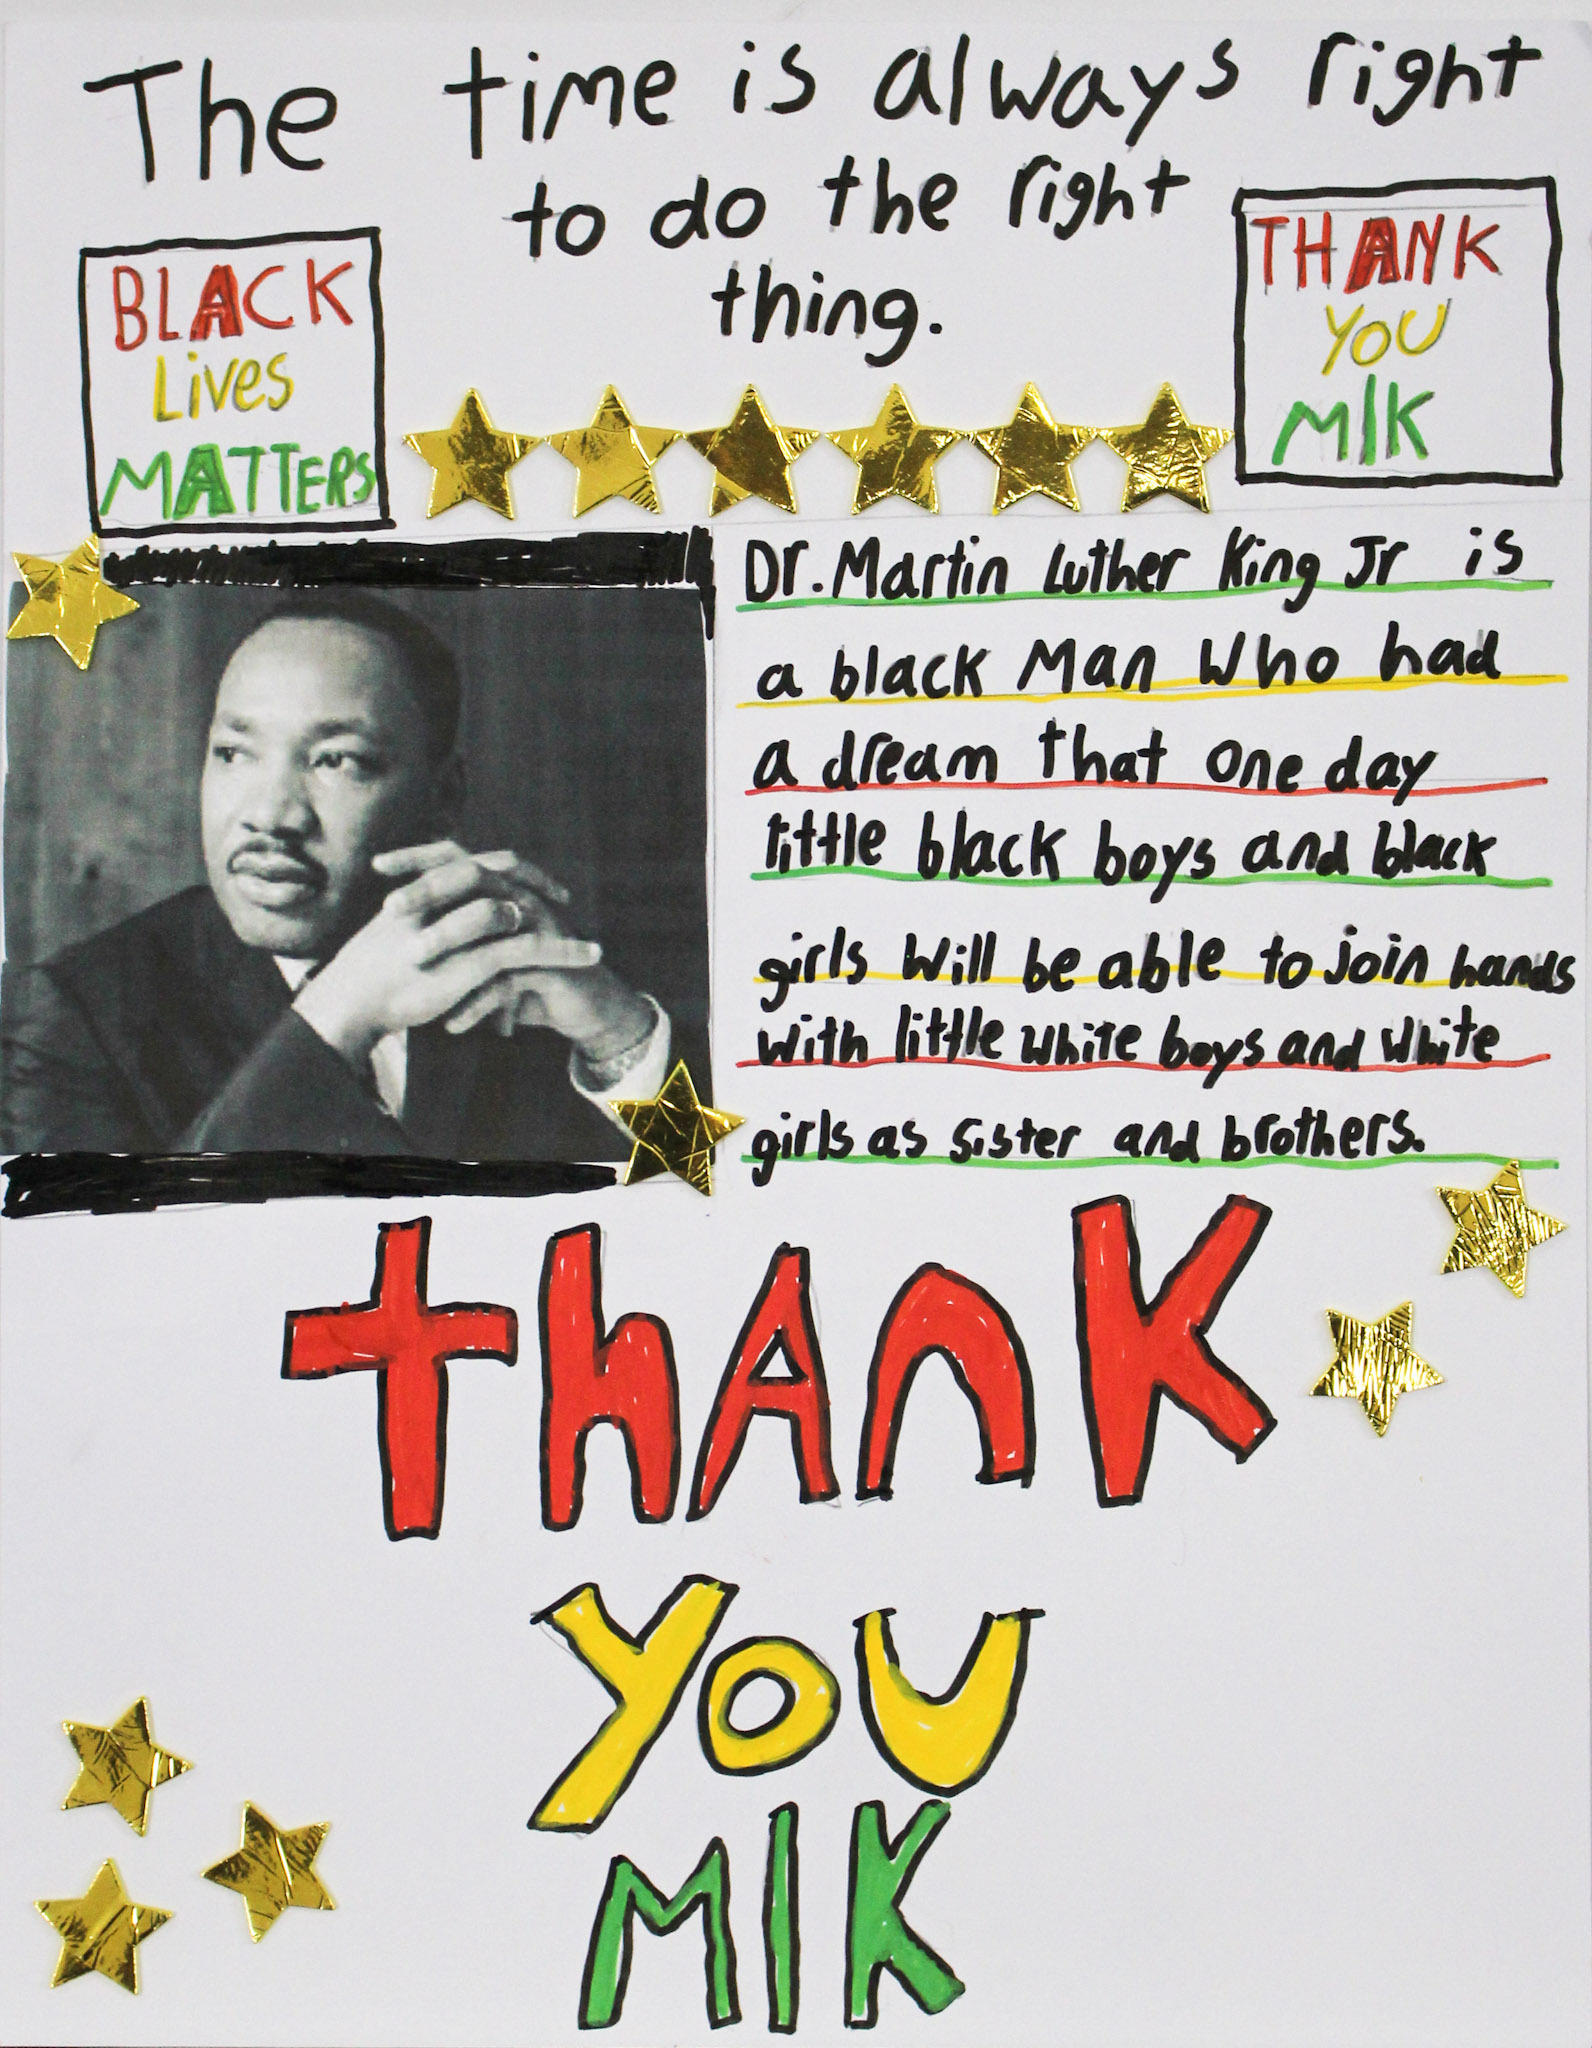 The time is always right
to do the right
thing.
BLACK
Lives
MATTERS
THANK
YOU
MlK
Dr. Martin Luther King Jr is
a black Man Who had
a dream that one day
little black boys and black
girls will be able to join hands
with little white boys and white
girls as sister and brothers.
ThAnK
YOU
MlK